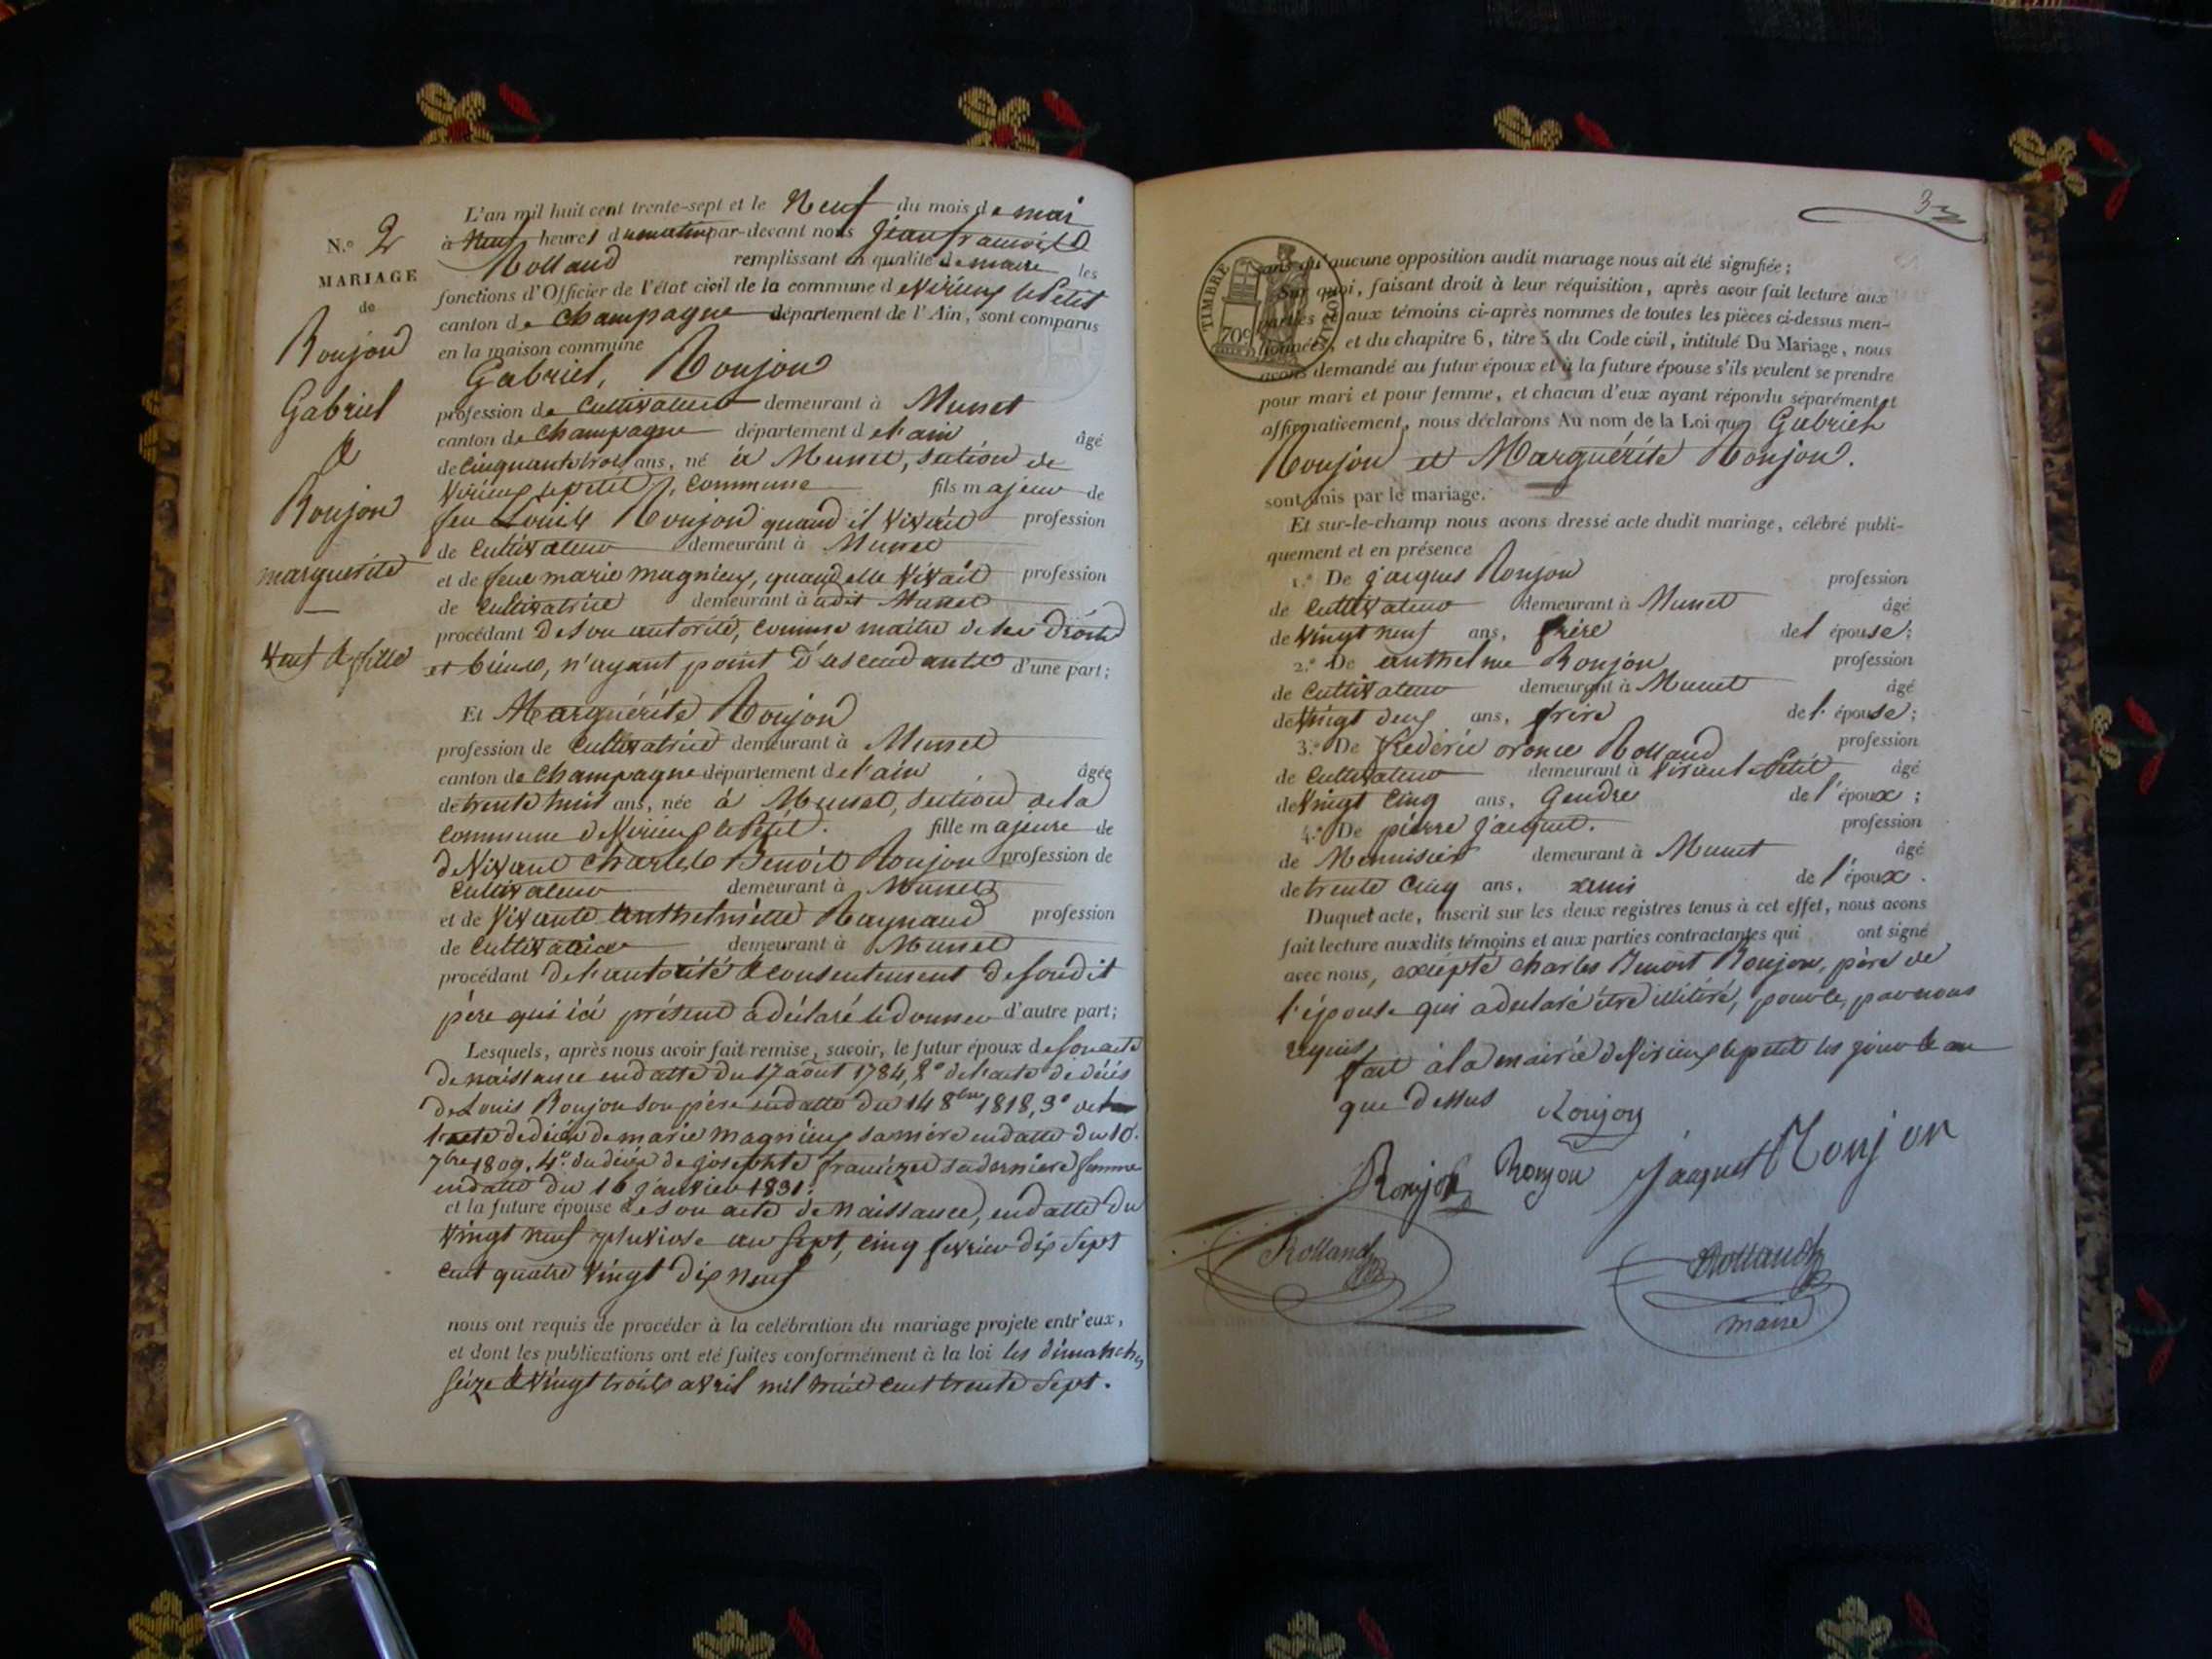 N.o 2
MARIAGE
de
Roujon
Gabriel
&
Roujon
marguérite
Veuf & fille
L'an mil huit cent trente-sept et le Neuf du mois de mai
à Neuf heures du matin par-devant nous Jean françois
Rolland remplissant en qualité de maire les
fonctions d'Officier de l'état civil de la commune de Virieux le Petit
canton de Champagne département de l'Ain, sont comparus
en la maison commune
Gabriel, Roujon
profession de Cultivateur demeurant à Munet
canton de Champagne département de l'ain âgé
de Cinquante trois ans, né à Munet, section de
Virieux le petit, Commune fils majeur de
feu Louis Roujon quand il vivait profession
de Cultivateur demeurant à Munet
et de feue marie magnieux, quand elle vivait profession
de Cultivatrice demeurant à udit Munet
procédant de son autorité, comme maître de ses Droits
et biens, n'ayant point d'ascendants d'une part;
Et Marguérite Roujon
profession de Cultivatrice demeurant à Munet
canton de Champagne département de l'ain âgée
de trente huit ans, née à Munet, section de la
Commune de Virieux le Petit. fille majeure de
de Vivant Charles Benoit Roujon profession de
Cultivateur demeurant à Munet
et de Vivante Anthelmette Raynaud profession
de Cultivatrice demeurant à Munet
procédant de l'autorité & consentement de son dit
père qui ici présent a déclaré le donner d'autre part;
Lesquels, après nous avoir fait remise, savoir, le futur époux de son acte
de naissance en datte du 17 août 1784, 2° de l'acte de décès
de Louis Roujon son père en datte du 14 8bre 1818, 3° de
l'acte de décès de marie magnieux sa mère en datte du 10.
7bre 1809, 4° du décès de josephte sa dernière femme
en datte du 16 janvier 1831.
et la future épouse de son acte de naissance, en datte du
vingt neuf pluviose an sept, cinq fevrier dix sept
cent quatre vingt dix neuf
nous ont requis de procéder à la célébration du mariage projeté entr'eux,
et dont les publications ont été faites conformément à la loi les dimanches
seize & vingt trois avril mil huit cent trente sept.
3
TIMBRE ROYAL
70c
sans qu'aucune opposition audit mariage nous ait été signifiée;
Sur quoi, faisant droit à leur réquisition, après avoir fait lecture aux
parties et aux témoins ci-après nommés de toutes les pièces ci-dessus men-
tionnées, et du chapitre 6, titre 5 du Code civil, intitulé Du Mariage, nous
avons demandé au futur époux et à la future épouse s'ils veulent se prendre
pour mari et pour femme, et chacun d'eux ayant répondu séparément et
affirmativement, nous déclarons Au nom de la Loi que Gabriel
Roujon et Marguérite Roujon.
sont unis par le mariage.
Et sur-le-champ nous avons dressé acte dudit mariage, célébré publi-
quement et en présence
1.o De jacques Roujon profession
de Cultivateur demeurant à Munet âgé
de Vingt neuf ans, frère de l'épouse;
2.o De anthelme Roujon profession
de Cultivateur demeurant à Munet âgé
de Vingt deux ans, frère de l'épouse;
3.o De frédéric oronce Rolland profession
de Cultivateur demeurant à Virieu le Petit âgé
de Vingt Cinq ans, Gendre de l'époux;
4.o De pierre jacquet. profession
de Menuisier demeurant à Munet âgé
de trente Cinq ans, amis de l'époux.
Duquel acte, inscrit sur les deux registres tenus à cet effet, nous avons
fait lecture auxdits témoins et aux parties contractantes qui ont signé
avec nous, excépté Charles Benoit Roujon, père de
l'épouse qui a déclaré être illitéré, pour le, par nous
requis,
fait à la mairie de Virieux le petit les jour & an
que dessus Roujon
Roujon Roujon Jacquet Roujon
Rolland Rolland
maire